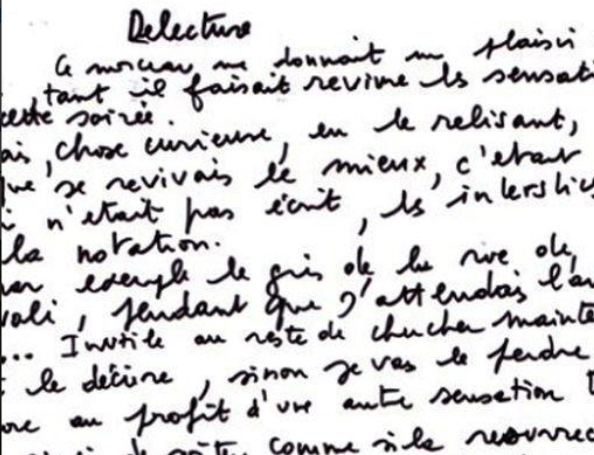 Relecture
Ce morceau me donnait un plaisi
tant il faisait revivre les sensati
cette soirée.
ais, chose curieuse, en le relisant,
que je revivais le mieux, c'etait
i n'etait pas écrit, les interstices
la notation.
par exemple le gris de la rue de
voli, pendant que j'attendais l'au
... Inutile au reste de chercher mainte
le décrire, sinon je vas le perdre
ore au profit d'une autre sensation
de goûter comme si la resurrec